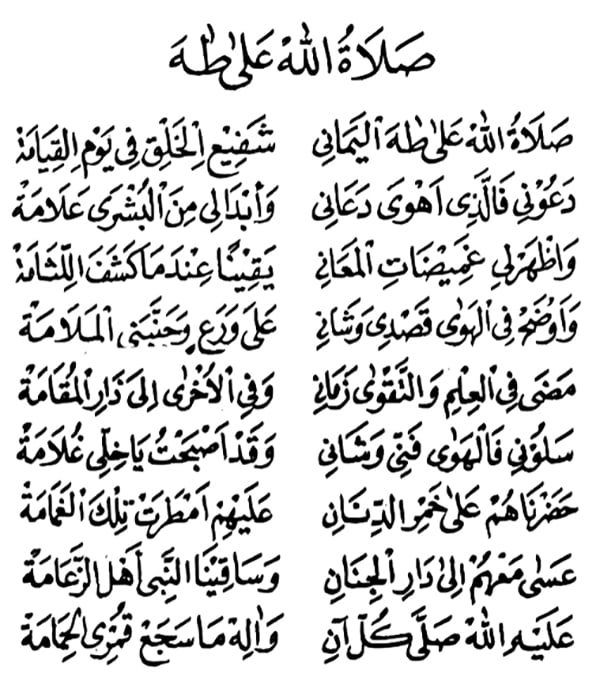 صَلَاةُ اللهْ عَلىٰ طٰهَ
صَلَاةُ اللهْ عَلىٰ طٰهَ الْيَمَانِي شَفِيْعِ الْخَلْقِ فِي يَوْمِ الِقِيَامَةْ
دَعُوْنِي فَالَّذِى اَهْوَى دَعَانِي وَأَبْدَالِى مِنَ الْبُشْرَى عَلَامَةْ
وَاظْهَرْلِي غَمِيْضَاتِ الْمَعَانِي يَقِيْنًا عِنْدَ مَا كَشَفَ اللِّثَامَةْ
وَاَوْضَحْ فِى الْهَوٰى قَصْدِى وَشَانِي عَلىَ وَرَعٍ وَجَنَّبَنِى الْمَلَامَةْ
مَضَى فِى الْعِلْمِ وَالتَّقْوٰى زَمَانِي وَفِي الْاُخْرٰى اِلىَ دَارِ الْمُقَامَةْ
سَلُوْنِي فَالْهَوٰى فَنِّى وَشَانِي وَقَدْ اَصْبَحْتُ يَاخِلِّى غُلَامَةْ
حَضَرْنَاهُمْ عَلىٰ خَمْرِ الدِّنَانِ عَلَيْهِمْ اَمْطَرَتْ تِلْكَ الْغَمَامَةْ
عَسٰى مَعْهُمْ اِلىٰ دَارِ الْجِنَانِ وَسَاقِيْنَا النَّبِى أَهْلَ الزَّعَامَةْ
عَلَيْهِ اللهْ صَلَّى كُلَّ آنِ وَاٰلِهْ مَا سَجَعْ قُمْرِى الْحَمَامَةْ